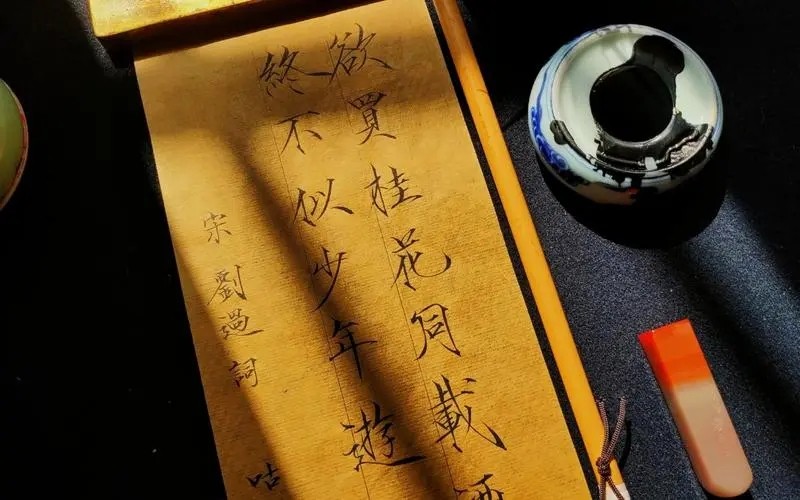 欲買桂花同載酒
終不似少年遊
宋劉過詞
咕